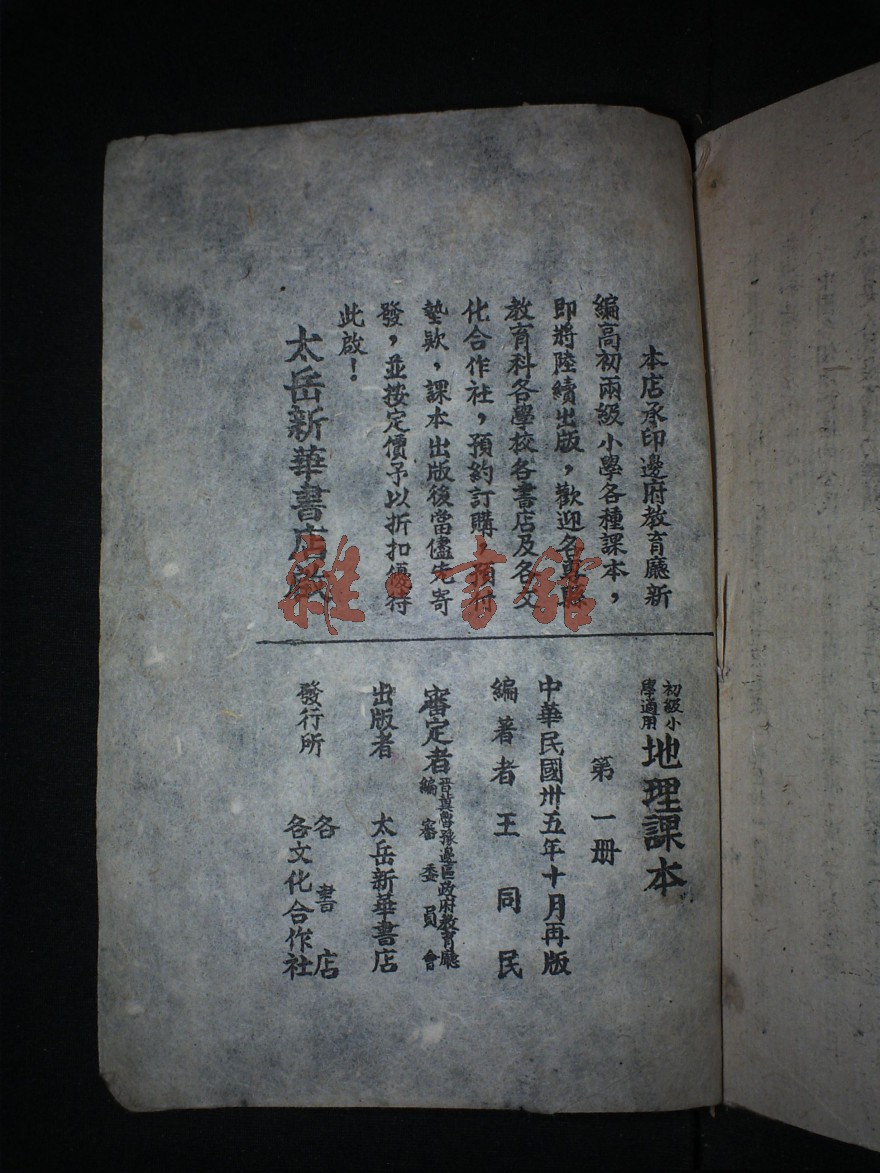 本店承印邊府教育廳新
編高初兩級小學各種課本，
即將陸續出版，歡迎各專縣
教育科各學校各書店及各文
化合作社，預約訂購，預付
墊欵，課本出版後當儘先寄
發，並按定價予以折扣優待
此啟！
太岳新華書店啟
初級小
學適用
地理課本
第一册
中華民國卅五年十月再版
編著者王同民
審定者
晋冀魯豫邊區政府教育廳
編審委員會
出版者 太岳新華書店
發行所
各書店
各文化合作社
雜·書館